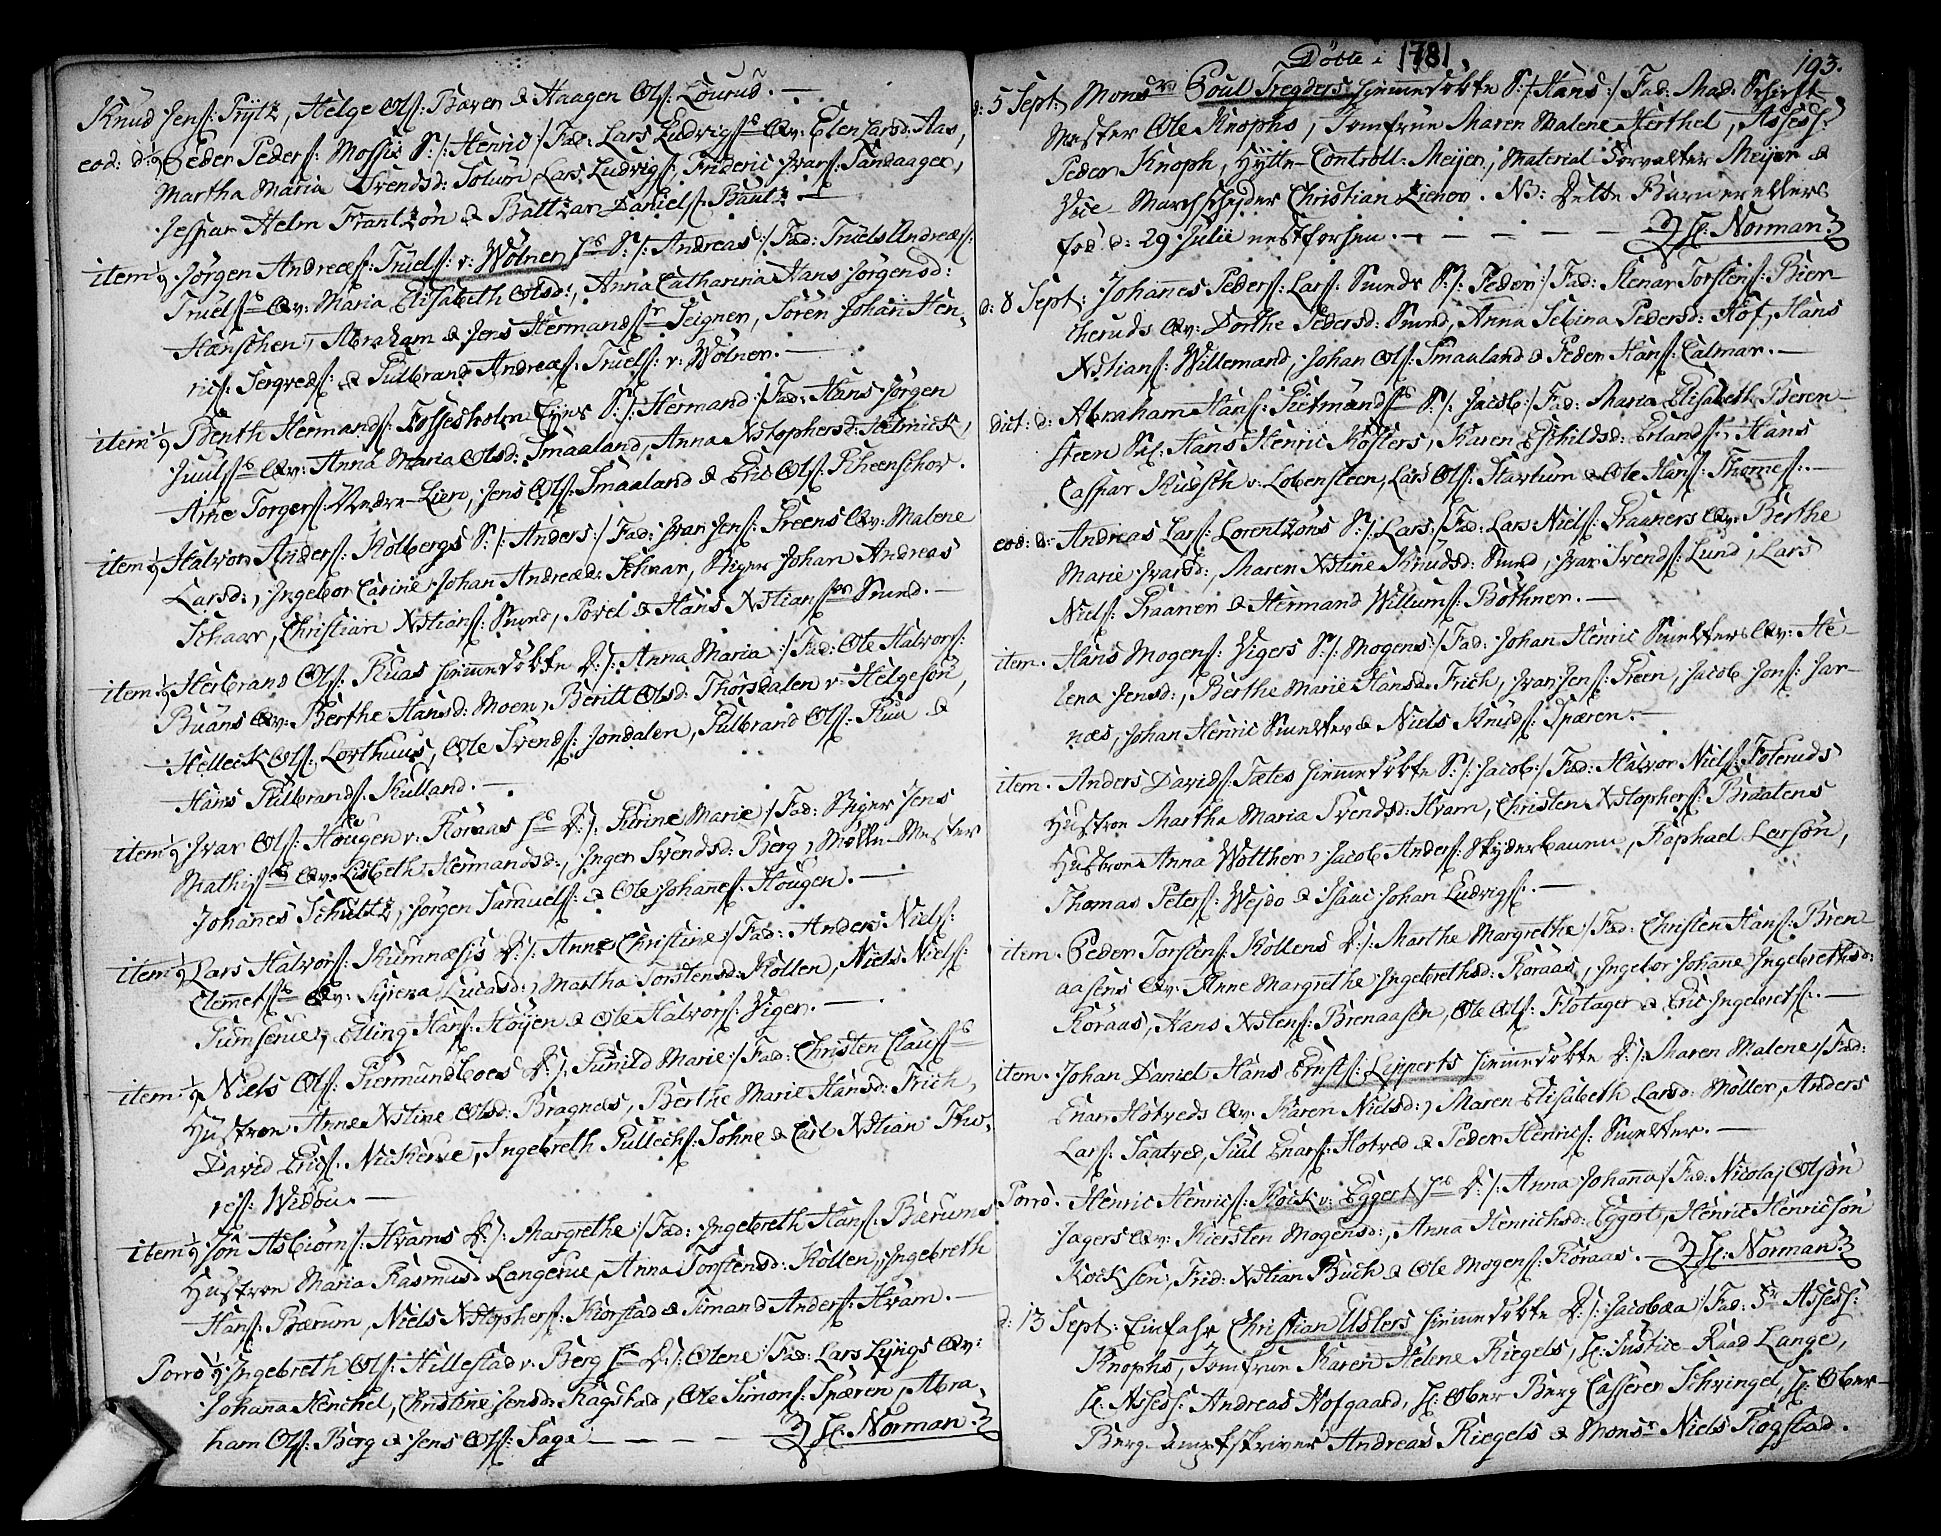 Knud Jens: Pÿtz, Helge Ols: Baven & Haagen Ols: Lourud. —
eod: d: Peder Peders: Mossie S: /: Henric :/ Fad: Lars Ludvigs: Qv: Elen Larsd: Aas,
Martha Maria Svendsd: Solum, Lars Ludvigs:, Frideric Ivars: Sandaager,
Jesper Helm Frantzøn & Baltzar Daniels: Bautz. —
item Jørgen Andreæs: Truels: v: Wølner S: /: Andreas :/ Fad: Truels Andreæs:
Truels: Qv: Maria Elisabeth Olsd:, Anna Catharina Hans Jørgensd:
Hænschen, Abraham & Jens Hermands: Teigner, Søren Johan Hen,
rics: Serqveds: & Gulbrand Andreæs: Truels: v: Wølner. —
item Benth Hermands: Fossesholm Eyes S: /: Hermand :/ Fad: Hans Jørgen
Juuls: Qv: Anna Maria Olsd: Smaaland, Anna Xstophersd: Helmick,
Arne Torgers: Nedre-Lien, Jens Ols: Smaaland & Eric Ols: Rheenschor.
item Halvor Anders: Kolbergs S: /: Anders :/ Fad: Ivar Jens: Preens Qv: Malene
Larsd:, Ingebor Carine Johan Andreæd: Schaar, Stiger Johan Andreas
Schaar, Christian Xstians: Smed, Povel & Hans Xstians: Smed. —
item Herbrand Ols: Ruas hiemmedøbte D: /: Anna Maria :/ Fad: Ole Halvors:
Buäns Qv: Berthe Hansd: Moen, Beritt Olsd: Thorsdalen v: Helgesøn,
Helleck Ols: Lorthuus, Ole Svends: Jondalen, Gulbrand Ols: Rua &
Hans Gulbrands: Rulland. —
item Ivar Ols: Hougen v: Koraas D: /: Gurine Marie :/ Fad: Stiger Jens
Mathis: Qv: Lisbeth Hermandsd:, Inger Svendsd: Berg, Mølle Mester
Johanes Schultz, Jørgen Samuels: & Ole Johanes: Hougen. —
item Lars Halvors: Rumnæsis D: /: Anne Christine :/ Fad: Anders Niels:
Clemets: Qv: Syrena Lucasd:, Martha Torstensd: Kollen, Niels Niels:
Gumserue, Elling Hans: Høyen & Ole Halvors: Viger. —
item Niels Ols: Giermundboes D: /: Gunild Marie :/ Fad: Christen Claus:
Hustroe Anne Xstine Olsd: Bragnæs, Berthe Marie Hansd: Frich,
David Erics: Nickerue, Ingebreth Gullechs: Sohne & Carl Xstian Tho,
res: Widou. —
item Jøn Asbiørns: Hvams D: /: Margrethe :/ Fad: Ingebreth Hans: Bærums
Hustroe Maria Rasmusd: Langerue, Anna Torstensd: Kollen, Ingebreth
Hans: Bærum, Niels Xstophers: Kiorstad & Simand Anders: Hvam. —
Porrò Ingebreth Ols: Hillestad v: Berg D: /: Olene :/ Fad: Lars Lyngs Qv:
Johana Henchel, Christine Jensd: Ragstad, Ole Simons: Spæren, Abra,
ham Ols: Berg & Jens Ols: Saga — — — H: Norman.
Døbte i 1781.
193.
d: 5 Sept: Monsr Poul Tregders hiemmedøbte S: /: Hans :/ Fad: Mad: Schift-
Mester Ole Knophs, Jomfrue Maren Malene Herthel, Assess:
Peder Knoph, Hytte-Controll: Meijer, Material-Forvalter Meijer &
Vice-Marchscheider Christian Lienov. NB: Dette Barn er ellers
fød d: 29 Julii nestforhen. — — — H: Norman
d: 8 Sept: Johanes Peders: Lars: Smeds S: /: Peder :/ Fad: Stenar Torstens: Bier-
cheruds Qv: Dorthe Pedersd: Smed, Anna Sebina Pedersd: Hof, Hans
Xstians: Willemand, Johan Ols: Smaaland & Peder Hans: Calmar. —
dict: d: Abraham Hans: Pietmands: S: /: Jacob :/ Fad: Maria Elisabeth Beren-
steen Sal: Hans Henric Kösters, Karen Eschildsd: Erlands:, Hans
Caspar Hudsch v: Lobensteen, Lars Ols: Stavlum & Ole Hans: Thomes: —
eod: d: Andreas Lars: Lorentzøns S: /: Lars :/ Fad: Lars Niels: Praaners Qv: Berthe
Marie Ivarsd:, Maren Xstine Knudsd: Smed, Ivar Svends: Lund, Lars
Niels: Praaner & Hermand Willums: Bøthner. —
item. Hans Mogens: Vigers S: /: Mogens :/ Fad: Johan Henric Smelters Qv: He-
lena Jensd:, Berthe Marie Hansd: Frich, Ivar Jens: Preen, Jacob Jons: Jar-
næs, Johan Henric Smelter & Niels Knuds: Spæren. —
item. Anders Davids: Tates hiemmedøbte S: /: Jacob :/ Fad: Halvor Niels: Foteruds
Hustroe Martha Maria Svendsd: Hvam, Christen Xstophers: Braatens
Hustroe Anna Wølther, Jacob Anders: Skyderbaunn, Raphael Larsøn,
Thomas Peters: Wejdo & Isaac Johan Ludvigs: —
item. Peder Torstens: Kollens D: /: Marthe Margrethe :/ Fad: Christen Hans: Bren-
aasens Qv: Anne Margrethe Ingebrethsd: Koraas, Ingebor Johane Ingebrethsd:
Koraas, Hans Xstens: Brenaasen, Ole Ols: Flotager & Eric Ingebrets: —
item. Johan Daniel Hans Ernsts: Lipperts hiemmedøbte D: /: Maren Malene :/ Fad:
Enar Hotveds Qv: Karen Nielsd:, Maren Elisabeth Larsd: Møller, Anders
Lars: Saatved, Siul Enars: Hotved & Peder Henrics: Smelter. —
Porrò. Henric Henrics: Kock v: Eggert D: /: Anna Johanna :/ Fad: Nicolaj Olsøn
Jagers Qv: Kiersten Mogensd:, Anna Henrichsd: Eggert, Henric Henricsøn
Kock sen:, Frid: Xstian Buch & Ole Mogens: Koraas. — H: Norman
d: 13 Sept: Einfahr Christian Usters hiemmedøbte D: /: Jacobæa :/ Fad: Fr Assess:
Knophs, Jomfrue Karen Helene Riegels, H: Justice-Raad Lange,
H: Assess: Andreas Hofgaard, H: Ober Berg Casserer Schvingel, H: Ober-
Berg-Amptskriver Andreas Riegels & Monsr Niels Rogstad.